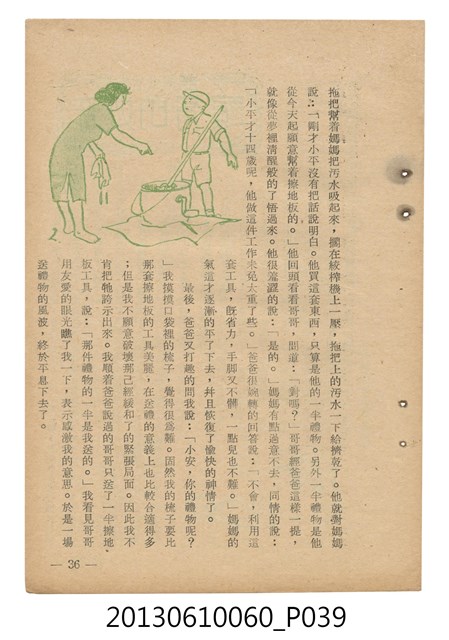 拖把幫着媽媽把污水吸起來，擱在絞搾機上一壓，拖把上的污水一下給擠乾了。他就對媽媽
說：「剛才小平沒有把話說明白。他買這套東西，只算是他的一半禮物。另外一半禮物是他
從今天起願意幫着擦地板的。」他回頭看看哥哥，問道：「對嗎？」哥哥經爸爸這樣一提，
就像從夢裡清醒般的了悟過來。他很羞澀的說：「是的。」媽媽有點過意不去，同情的說：
「小平才十四歲呢，他做這件工作未免太重了些。」爸爸很婉轉的回答說：「不會，利用這
套工具，旣省力，手脚又不髒，一點兒也不難。」媽媽的
氣這才逐漸的平了下去，幷且恢復了愉快的神情了。
最後，爸爸又打趣的問我說：「小安，你的禮物呢？
」我摸摸口袋裡的梳子，覺得很爲難。固然我的梳子要比
那套擦地板的工具美麗，在送禮的意義上也比較合適得多
；但是我不願意破壞那已經緩和了的緊張局面。因此我不
肯把牠誇示出來。我順着爸爸說過的哥哥只送了一半擦地
板工具，說：「那件禮物的一半是我送的。」我看見哥哥
用友愛的眼光瞧了我一下，表示感激我的意思。於是一場
送禮物的風波，終於平息下去了。
— 36 —
20130610060_P039